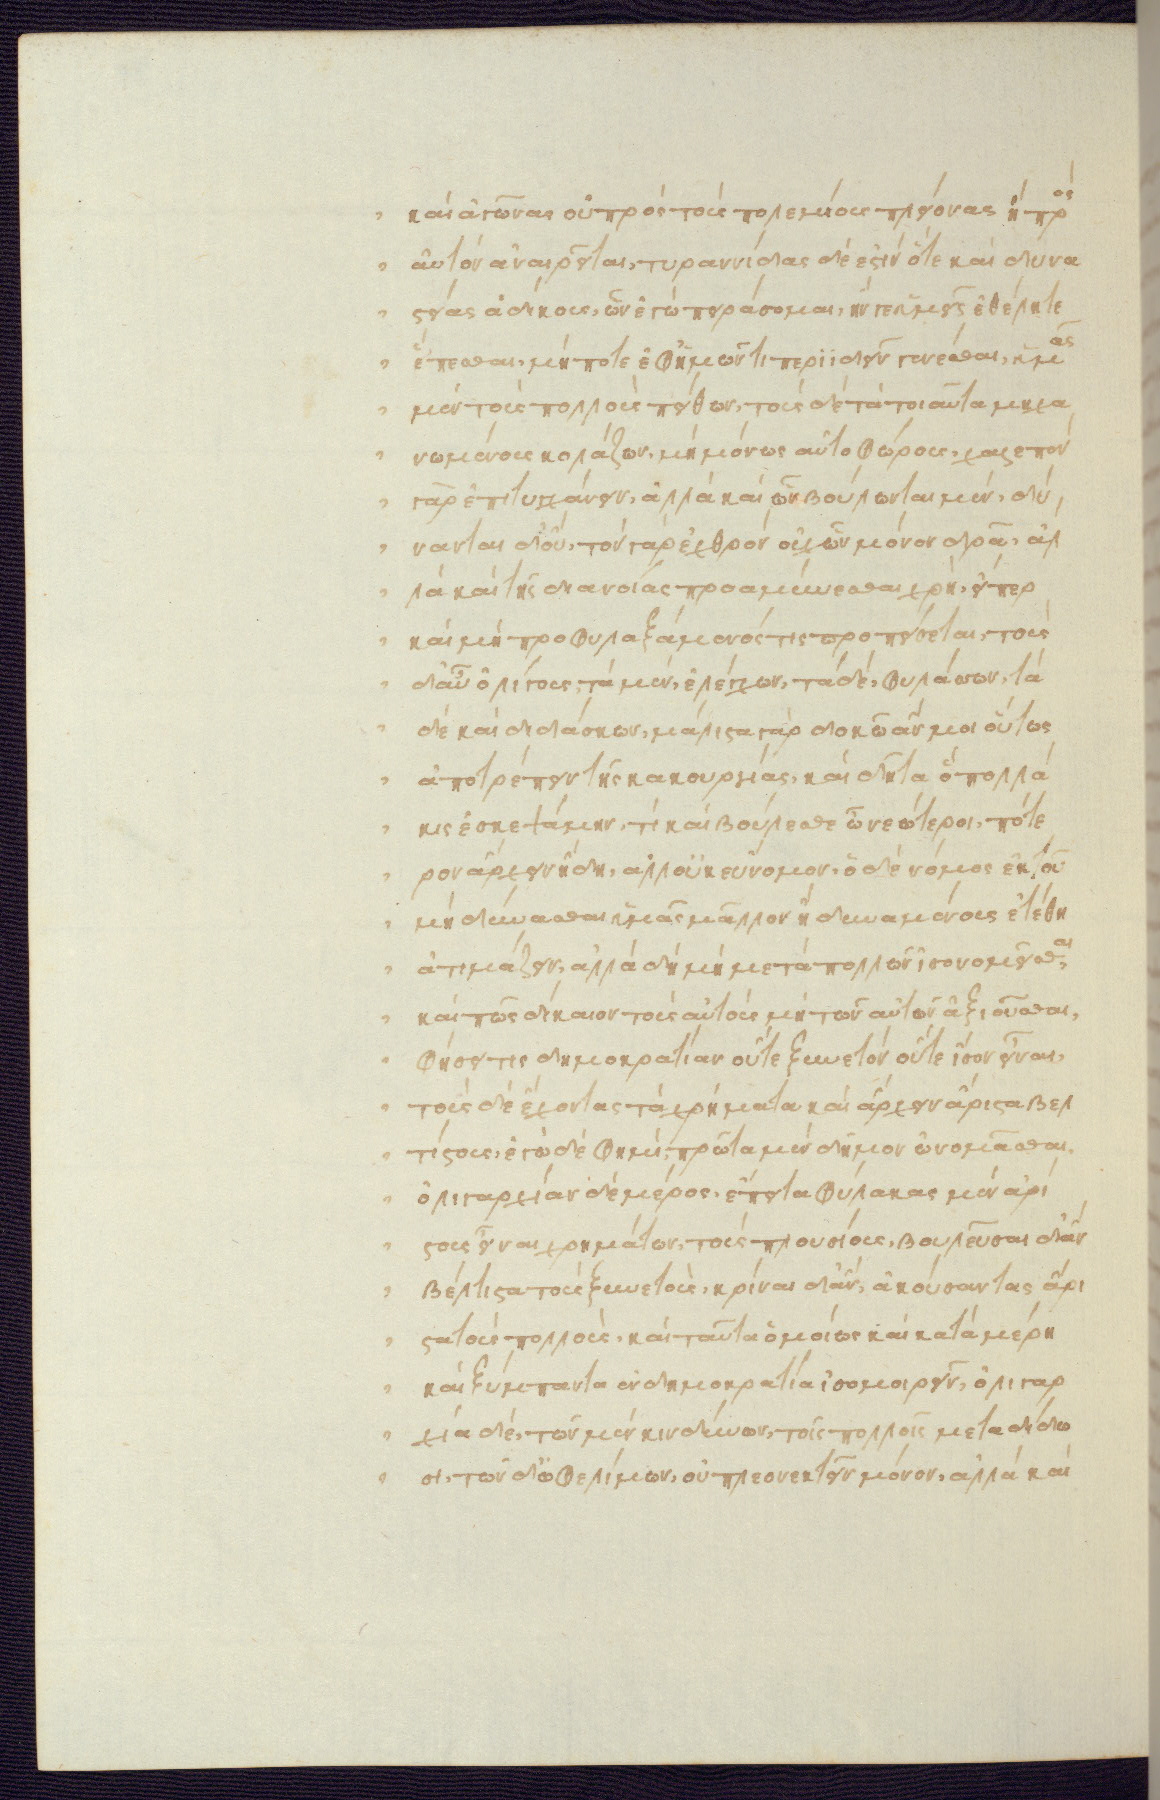 καὶ ἀγῶνας οὐ πρὸς τοὺς πολεμίους πλείονας ἢ πρὸς
αὐτὸν ἀναιρεῖται, τυραννίδας δὲ ἔστιν ὅτε καὶ δυνα
στείας ἀδίκους, ὧν ἐγὼ πειράσομαι, ἤν γε ὑμεῖς ἐθέλητε
ἕπεσθαι, μήποτε ἐφ' ἡμῶν τι περιιδεῖν γενέσθαι, ὑμᾶς
μὲν τοὺς πολλοὺς πείθων, τοὺς δὲ τὰ τοιαῦτα μηχα
νωμένους κολάζων, μὴ μόνως αὐτοφώρους, χαλεπὸν
γὰρ ἐπιτυγχάνειν, ἀλλὰ καὶ ὧν βούλωνται μὲν, δύ
νανται δ' οὔ, τὸν γὰρ ἐχθρὸν οὐχ ὧν μόνον δρᾶ, ἀλ
λὰ καὶ τῆς διανοίας προαμύνεσθαι χρὴ, εἴπερ
καὶ μὴ προφυλαξάμενός τις προπείσεται, τοὺς
δ' αὖ ὀλίγους, τὰ μὲν, ἐλέγχων, τὰ δὲ, φυλάσσων, τὰ
δὲ καὶ διδάσκων, μάλιστα γὰρ δοκῶ ἄν μοι οὕτως
ἀποτρέπειν τῆς κακουργίας, καὶ δῆτα ὃ πολλά
κις ἐσκεψάμην, τί καὶ βούλεσθε ὦ νεώτεροι, πότε
ρον ἄρχειν ἤδη, ἀλλ' οὐκ εὔνομον, ὁ δὲ νόμος ἐκ τοῦ
μὴ δύνασθαι ὑμᾶς μᾶλλον ἢ δυναμένους ἐτέθη
ἀτιμάζειν, ἀλλὰ δὴ μὴ μετὰ πολλῶν ἰσονομεῖσθαι,
καὶ πῶς δίκαιον τοὺς αὐτοὺς μὴ τῶν αὐτῶν ἀξιοῦσθαι,
φήσει τις δημοκρατίαν οὔτε ξυνετὸν οὔτε ἴσον εἶναι,
τοὺς δὲ ἔχοντας τὰ χρήματα καὶ ἄρχειν ἄριστα βελ
τίστους, ἐγὼ δὲ φημὶ, πρῶτα μὲν δῆμον ὠνομᾶσθαι.
ὀλιγαρχίαν δὲ μέρος, ἔπειτα φύλακας μὲν ἀρί
στους εἶναι χρημάτων, τοὺς πλουσίους, βουλεῦσαι δ' ἂν
βέλτιστα τοὺς ξυνετοὺς, κρίναι δ' ἂν, ἀκούσαντας ἄρι
στα τοὺς πολλοὺς, καὶ ταῦτα ὁμοίως καὶ κατὰ μέρη
καὶ ξύμπαντα ἐν δημοκρατία ἰσομοιρεῖν, ὀλιγαρ
χία δὲ, τῶν μὲν κινδύνων, τοῖς πολλοῖς μεταδίδω
σι, τῶν δ' ὠφελίμων, οὐ πλεονεκτεῖν μόνον, ἀλλὰ καὶ